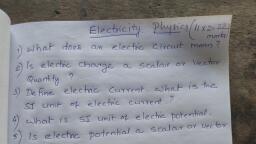 Electricity Physics (11x2=22
marks
1) What does an electric circuit mean?
2) Is electric charge a scalar or vector
quantity?
3) Define electric current what is the
SI unit of electric current?
4) What is SI unit of electric potential.
5) Is electric potential a scalar or vector